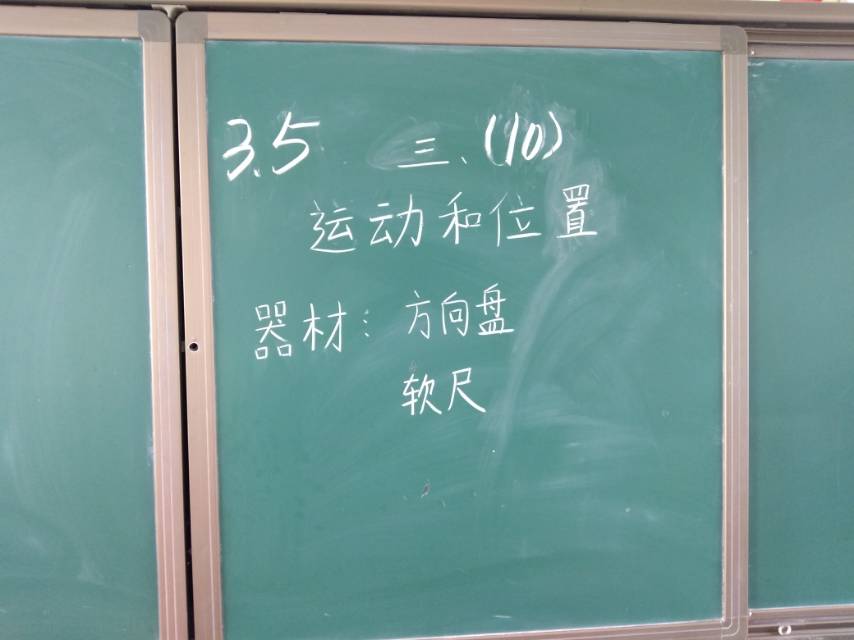 3.5 三、(10)
运动和位置
器材：方向盘
软尺